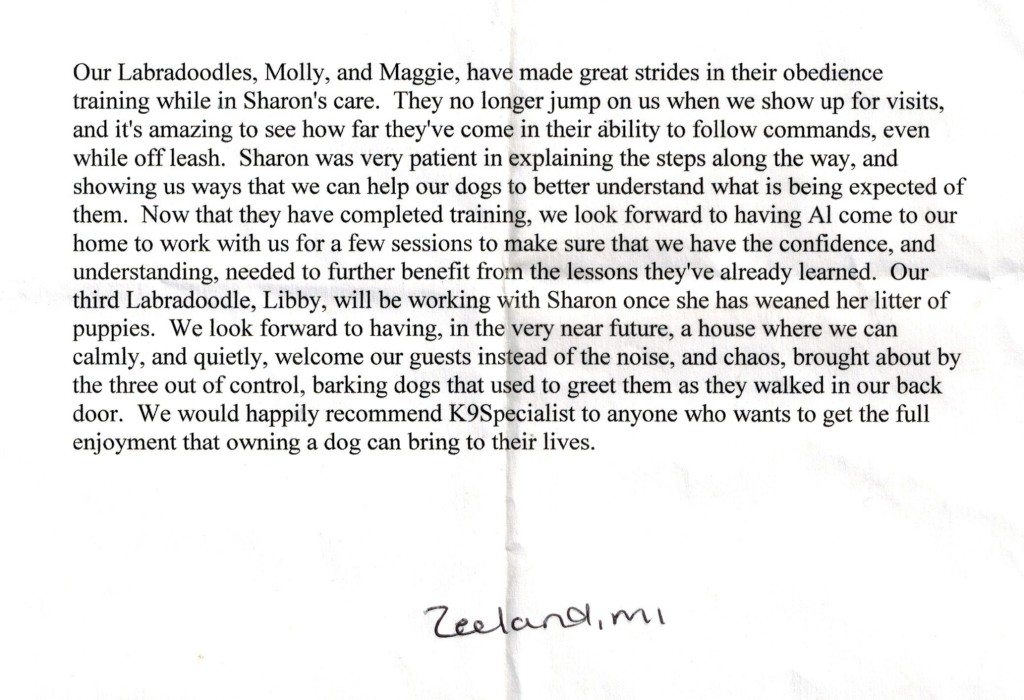 Our Labradoodles, Molly, and Maggie, have made great strides in their obedience
training while in Sharon's care.  They no longer jump on us when we show up for visits,
and it's amazing to see how far they've come in their ability to follow commands, even
while off leash.  Sharon was very patient in explaining the steps along the way, and
showing us ways that we can help our dogs to better understand what is being expected of
them.  Now that they have completed training, we look forward to having Al come to our
home to work with us for a few sessions to make sure that we have the confidence, and
understanding, needed to further benefit from the lessons they've already learned.  Our
third Labradoodle, Libby, will be working with Sharon once she has weaned her litter of
puppies.  We look forward to having, in the very near future, a house where we can
calmly, and quietly, welcome our guests instead of the noise, and chaos, brought about by
the three out of control, barking dogs that used to greet them as they walked in our back
door.  We would happily recommend K9Specialist to anyone who wants to get the full
enjoyment that owning a dog can bring to their lives.
Zeeland, MI